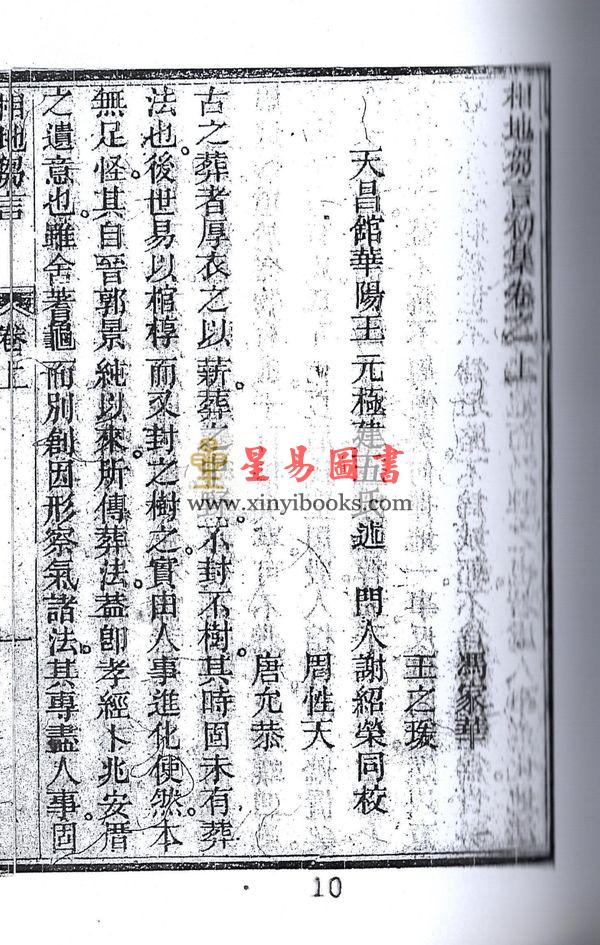 相地芻言初集卷之一上
馮家華
王之瑗
天昌館華陽王元極建五氏述 門人謝紹榮同校
周性天
唐允恭
古之葬者厚衣之以薪葬之不封不樹其時固未有葬
法也後世易以棺椁而又封之樹之實由人事進化使然本
無足怪其自晉郭景純以來所傳葬法蓋卽孝經卜兆安厝
之遺意也雖舍蓍龜而別創因形察氣諸法其專盡人事固
相地芻言 卷上 一
星易圖書
www.xinyibooks.com
10